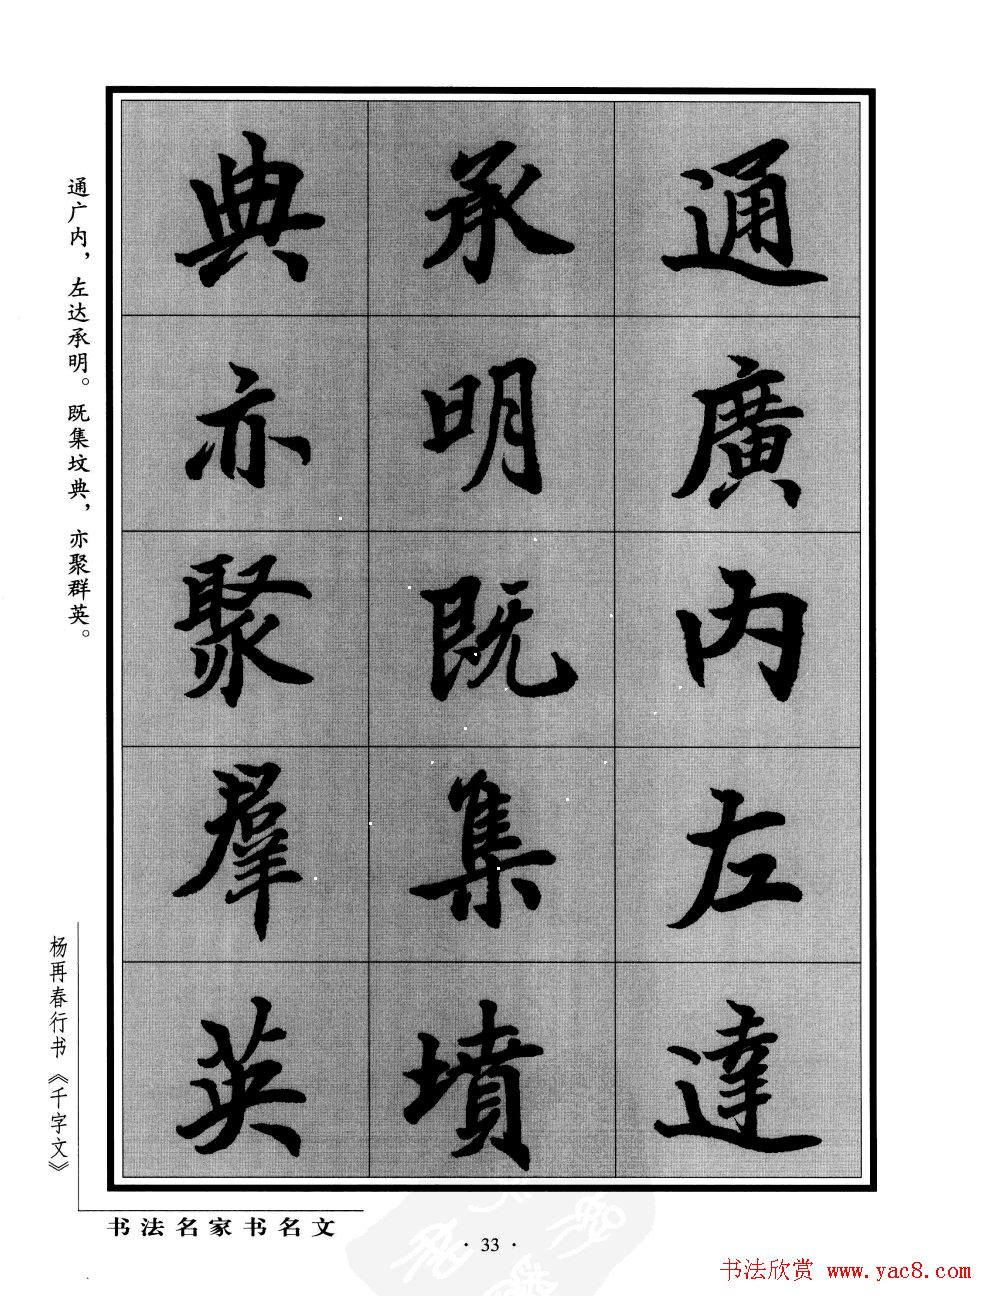 通廣内左達
承明既集墳
典亦聚羣英
通广内，左达承明。既集坟典，亦聚群英。
杨再春行书《千字文》
书法名家书名文
·33·
书法欣赏 www.yac8.com